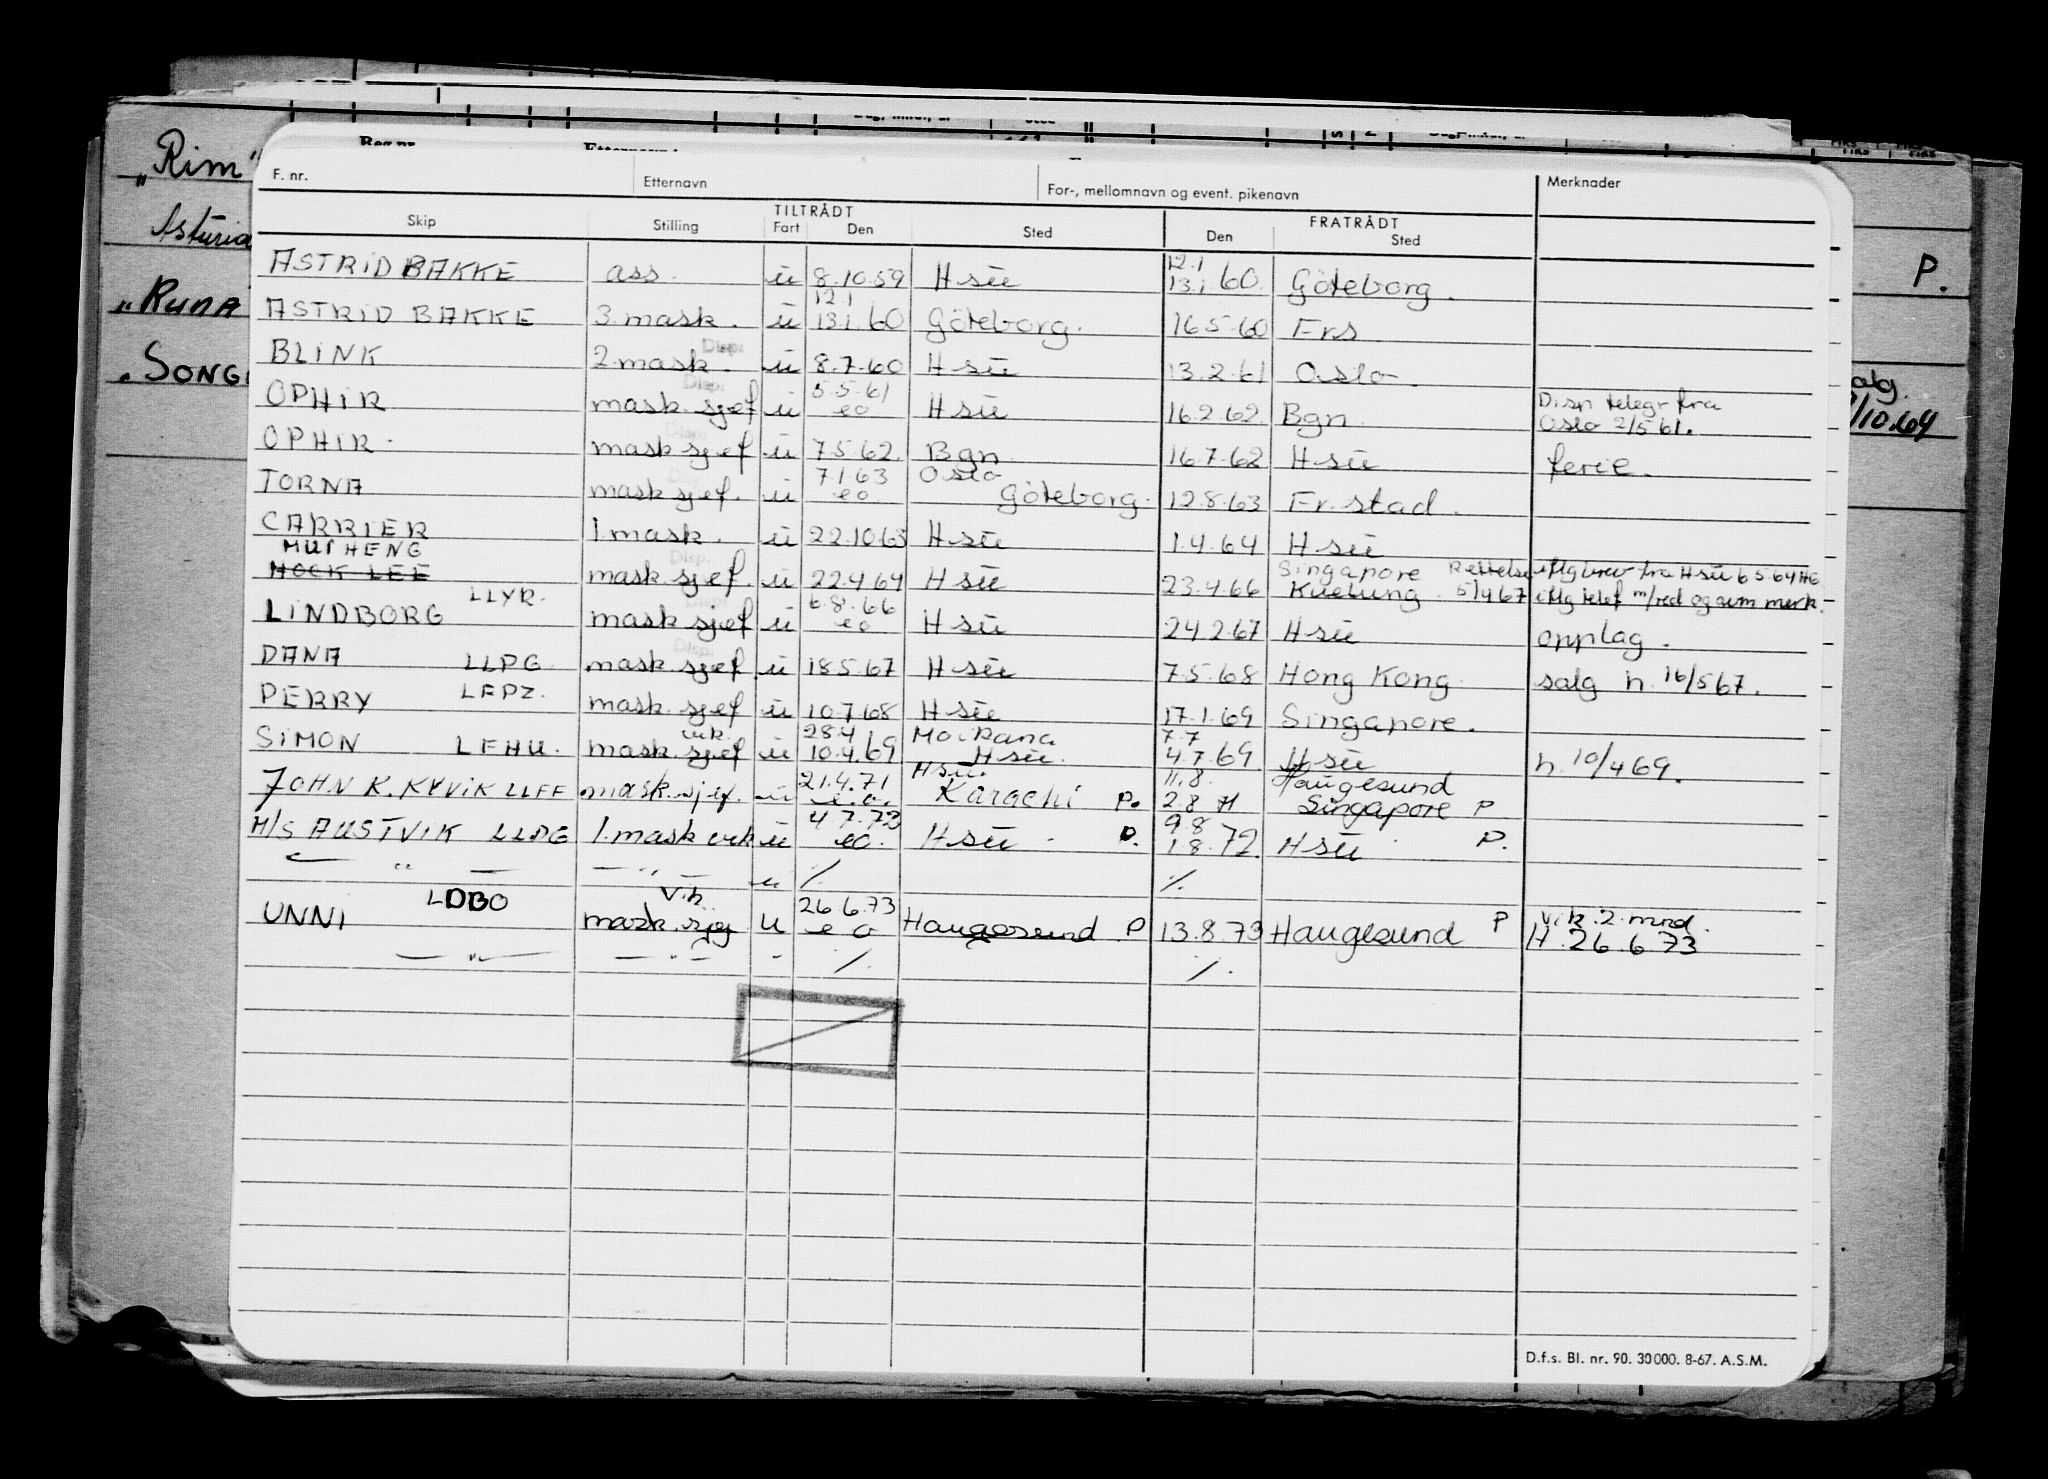 Reg.nr.
"Rim"
F. nr. Etternavn For-, mellomnavn og event. pikenavn Merknader
TILTRÅDT FRATRÅDT
Skip Stilling Fart Den Sted Den Sted
Asturia
ASTRID BAKKE ass. u 8.10.59 Hsu 12.1 13.1.60 Göteborg.
P.
"RUNA"
ASTRID BAKKE 3.mask. u 12.1 13.1.60 Göteborg. 16.5.60 Frs
BLINK 2.mask. Disp. u 8.7.60 Hsu 13.2.61 Oslo.
"SONG
OPHIR mask sjef Disp. u 5.5.61 eo Hsu 16.2.62 Bgn. Disp telegr fra Oslo 2/5 61.
alg.
/10.64
OPHIR. mask sjef Disp. u 7.5.62. Bgn. 16.7.62 Hsu ferie.
TORNA mask sjef. u 7.1.63 eo Oslo Göteborg. 12.8.63 Fr.stad.
CARRIER 1.mask. u 22.10.63 Hsu 1.4.64 Hsu
HUI HENG
HOCK LEE mask sjef. Disp. u 22.4.64 Hsu 23.4.66 Singapore Keelung. Rettelse iflg brev fra Hsu 6.5.64 HE
5/4 67 iflg telef m/red og som merk.
LINDBORG LLYR. mask sjef Disp. u 6.8.66 eo Hsu 24.2.67 Hsu opplag.
DANA LLPG. mask sjef. Disp. u 18.5.67 Hsu 7.5.68 Hong Kong salg h. 16/5 67.
PERRY LEPZ. mask sjef u 10.7.68 Hsu 17.1.69 Singapore.
SIMON LEHU. mask sjef vik. u 28.4 10.4.69 Mo i Rana Hsu. 7.7 4.7.69 Hsu h. 10/4 69.
JOHN K. KYVIK LLFF mask. sjef. u 21.4.71 e.o. Hsu. Karachi P. 11.8. 2.8 71 Haugesund Singapore P
M/S AUSTVIK LLDG 1.mask vik u 4.7.72 eo. Hsu P. 9.8 1.8.72. Hsu P.
— " — — " — u ./. ./.
UNNI LDBO mask.sjef Vik. u 26.6.73 e o Haugesund P 13.8.73 Haugesund P Vik. 2 mnd.
H. 26.6 73
— " — — " — - ./. ./.
D.f.s. Bl. nr. 90. 30000. 8-67. A.S.M.